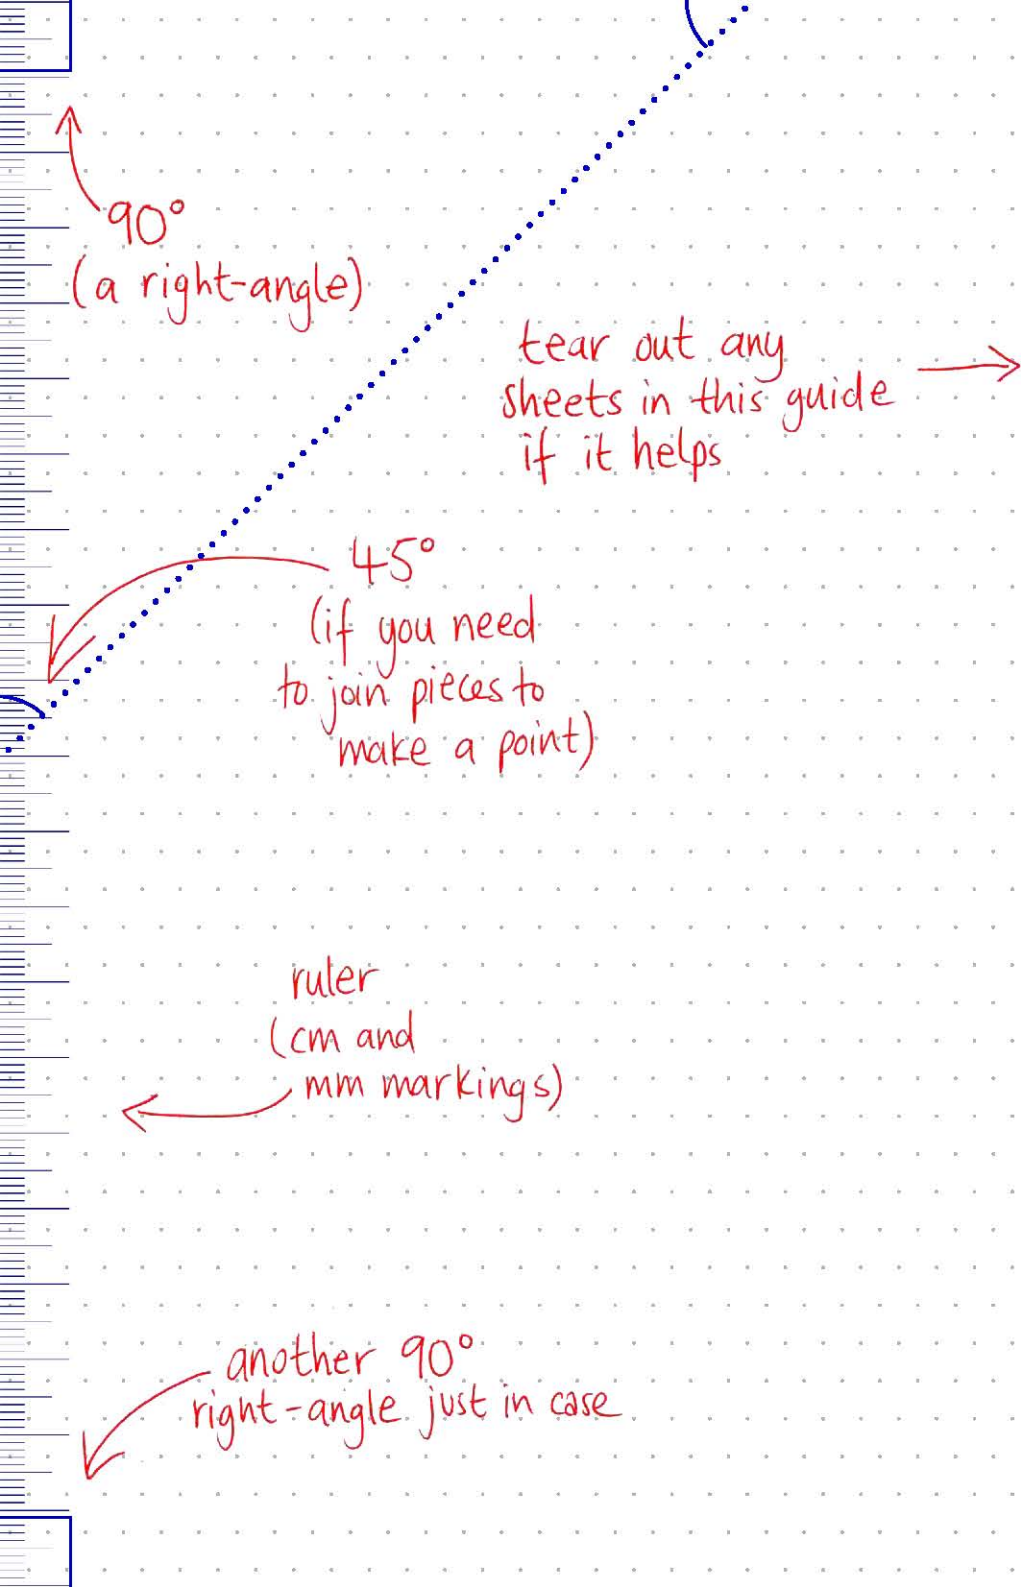 90°
(a right-angle)
tear out any
sheets in this guide
if it helps
45°
(if you need
to join pieces to
make a point)
ruler
(cm and
mm markings)
another 90°
right-angle just in case